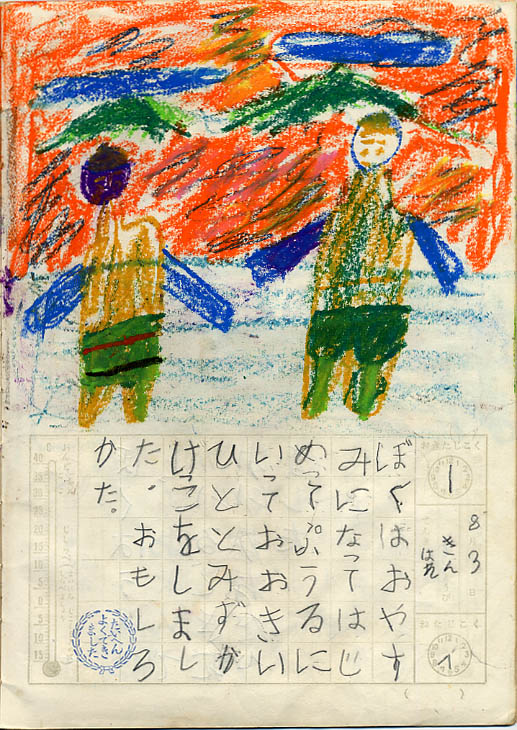 おきたじこく
8
3
日
きん
はれ
ねたじこく
ぼくはおやす
みになってはじ
めってぷうるに
いっておおきい
ひととみずが
けこをしまし
た。おもしろ
かた。
たいへん
よくでき
ました